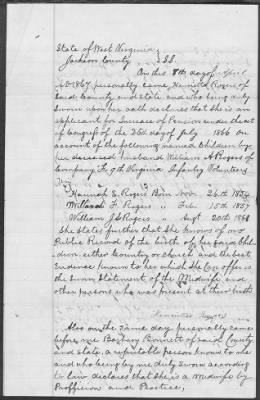 State of West Virginia
Jackson County } SS.
On this 8th day of April
AD 1867 personally came Henrietta Rogers of
said County and state and who being duly
sworn upon her oath declares that she is an
applicant for Increase of Pension under the act
of Congress of the 25th day of July 1866 on
account of the following named children by
her deceased Husband William A Rogers of
Company F. 9th Virginia Infantry Volunteers
Viz
Hannah E. Rogers Born Nov 26th
Willard F. Rogers " Feb 15th 1857
William J S Rogers " Sept 20th
She states further that she knows of no
Public Record of the birth of her said Chil-
dren either County or church and the best
Evidence known to her which she can offer is
the Sworn Statement of the Midwife and
other persons who was present at their birth
Henrietta Rogers
Also on the same day personally came
before me Bennett of said County
and state, a reputable person known to me
and who being by me duly sworn according
to law declares that she is a Midwife by
Proffesion and Practice,